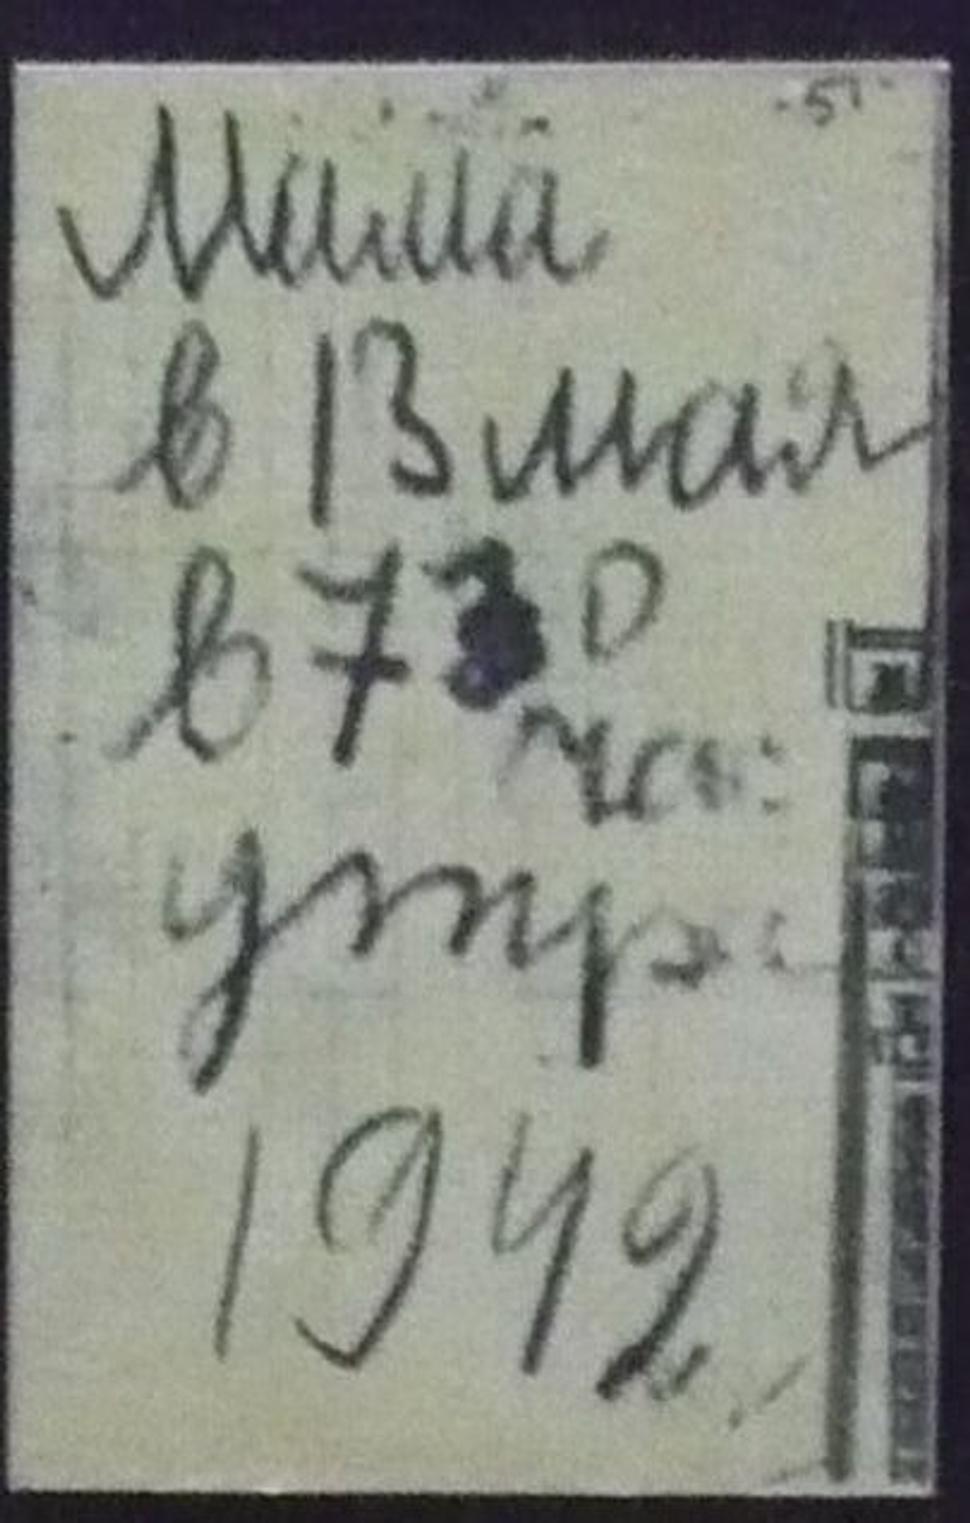 -51-
Мама
в 13 мая
в 730
час
утра
1942